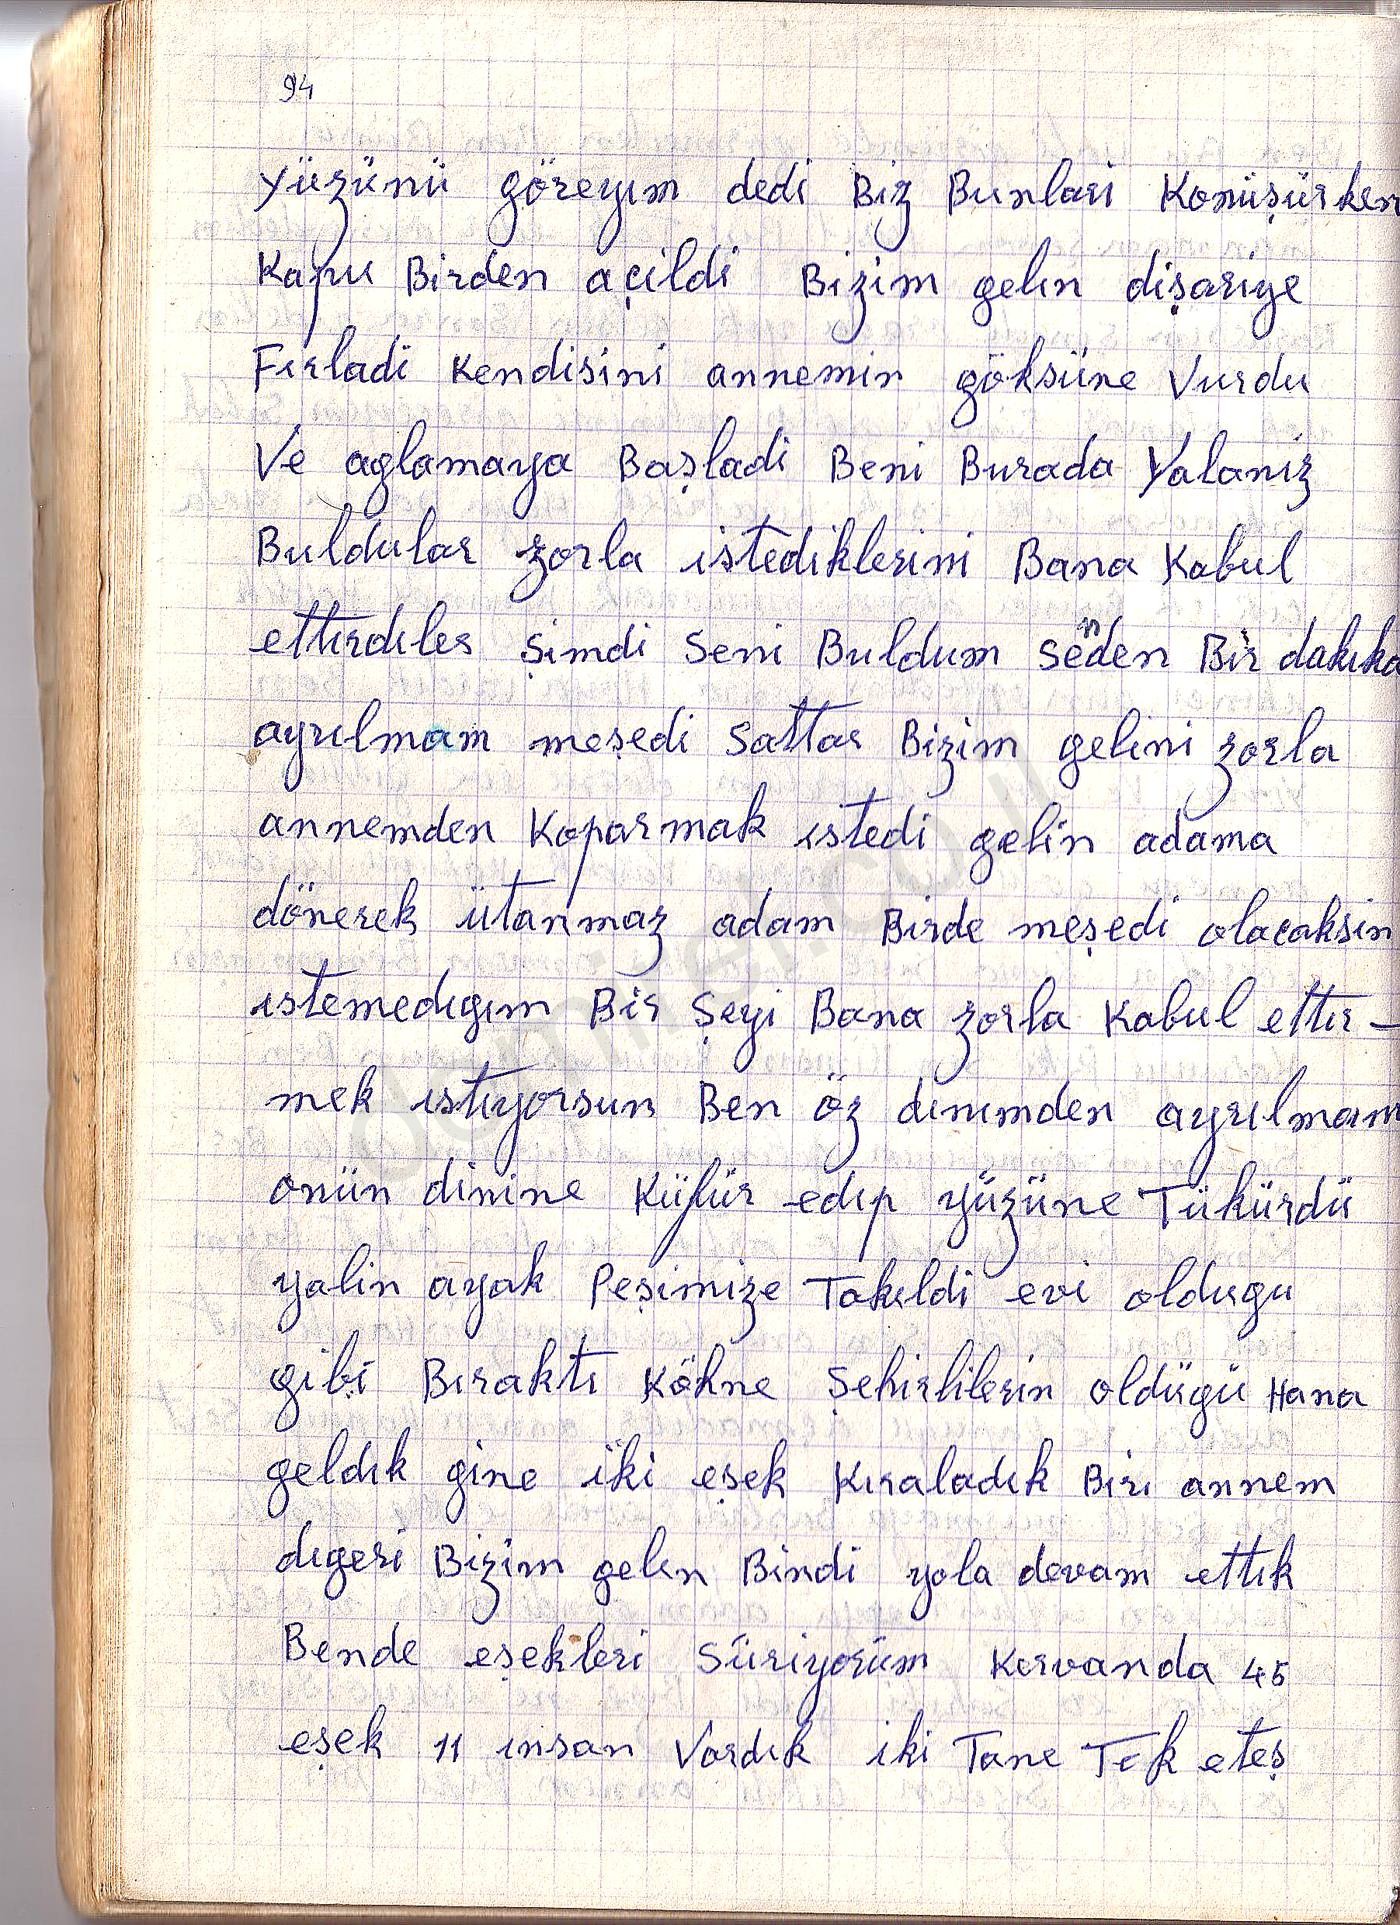 94
Yüzünü göreyım dedi Biz Bunlari Konüşürken
Kapu Birden açildi Bizim gelın dişariye
Fırladi Kendisini annemin göksüne Vurdu
Ve aglamaya Başladi Beni Burada Yalaniz
Buldular zorla istedıklerini Bana Kabul
ettırdıler Şimdi Seni Buldum Senden Bir dakıka
ayrılmam meşedi Sattar Bizim gelıni zorla
annemden Koparmak istedi gelin adama
dönerek ütanmaz adam Birde meşedi olacaksin
ıstemedıgım Bir Şeyi Bana zorla Kabul ettır-
mek ıstıyorsun Ben öz dınımden ayrılmam
onün dinine Küfür edıp yüzüne Tükürdü
yalin ayak Peşimize Takıldi evi oldugu
gibi Bıraktı Köhne Şehirlilerin oldügü Hana
geldık gine iki eşek Kıraladık Bırı annem
dıgeri Bizim gelın Bindi yola devam ettık
Bende eşekleri Süriyorüm Kırvanda 45
eşek 11 ınsan Vardık iki Tane Tek eteş